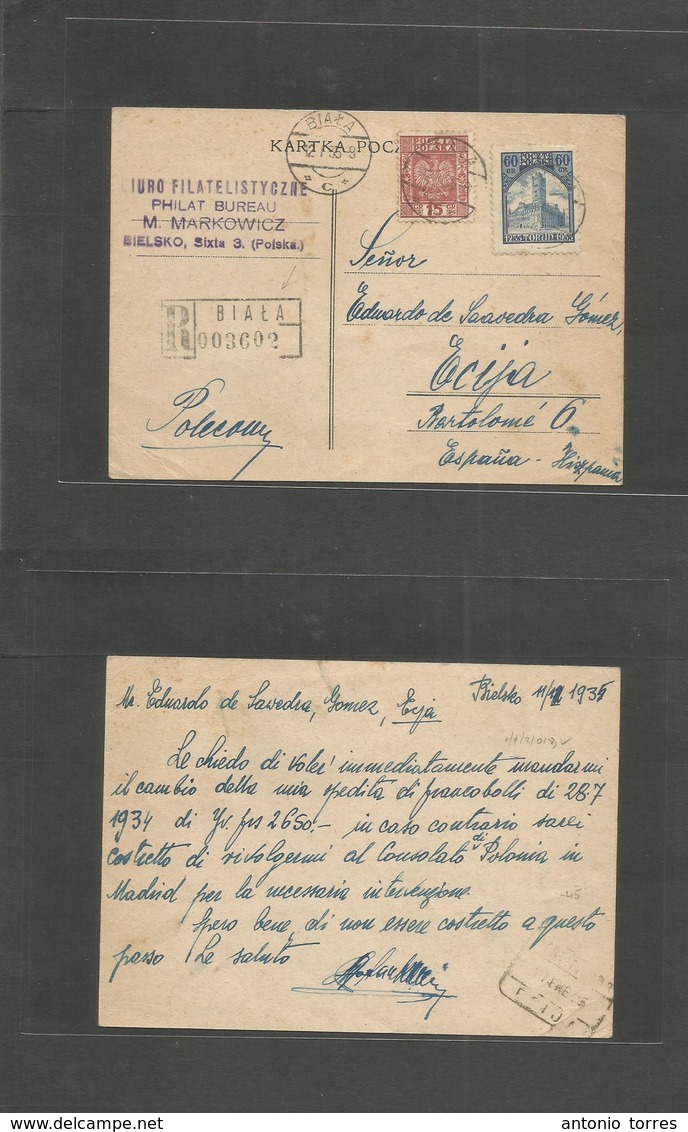 BIAŁA
KARTKA POCZ
POLSKA
15
60 POLSKA 60
GR GR
IURO FILATELISTYCZNE
PHILAT BUREAU
M. MARKOWICZ
BIELSKO, Sixta 3. (Polska.)
Señor
Eduardo de Saavedra Gómez,
R BIAŁA
003602
Ecija
Bartolomé 6
España - Hiszpania
Polecony
Mr. Eduardo de Savedra, Gomez, Ecja Bielsko 1935
Le chiedo di voler immediatamente mandarmi
il cambio della mia spedita di francobolli di 28.7
1934 di Yv. frs 2650.- in caso contrario sarei
costretto di rivolgermi al Consolato di Polonia in
Madrid per la necessaria intervenzione.
Spero bene, di non essere costretto a questo
passo Le saluto
www.delcampe.net
antonio torres